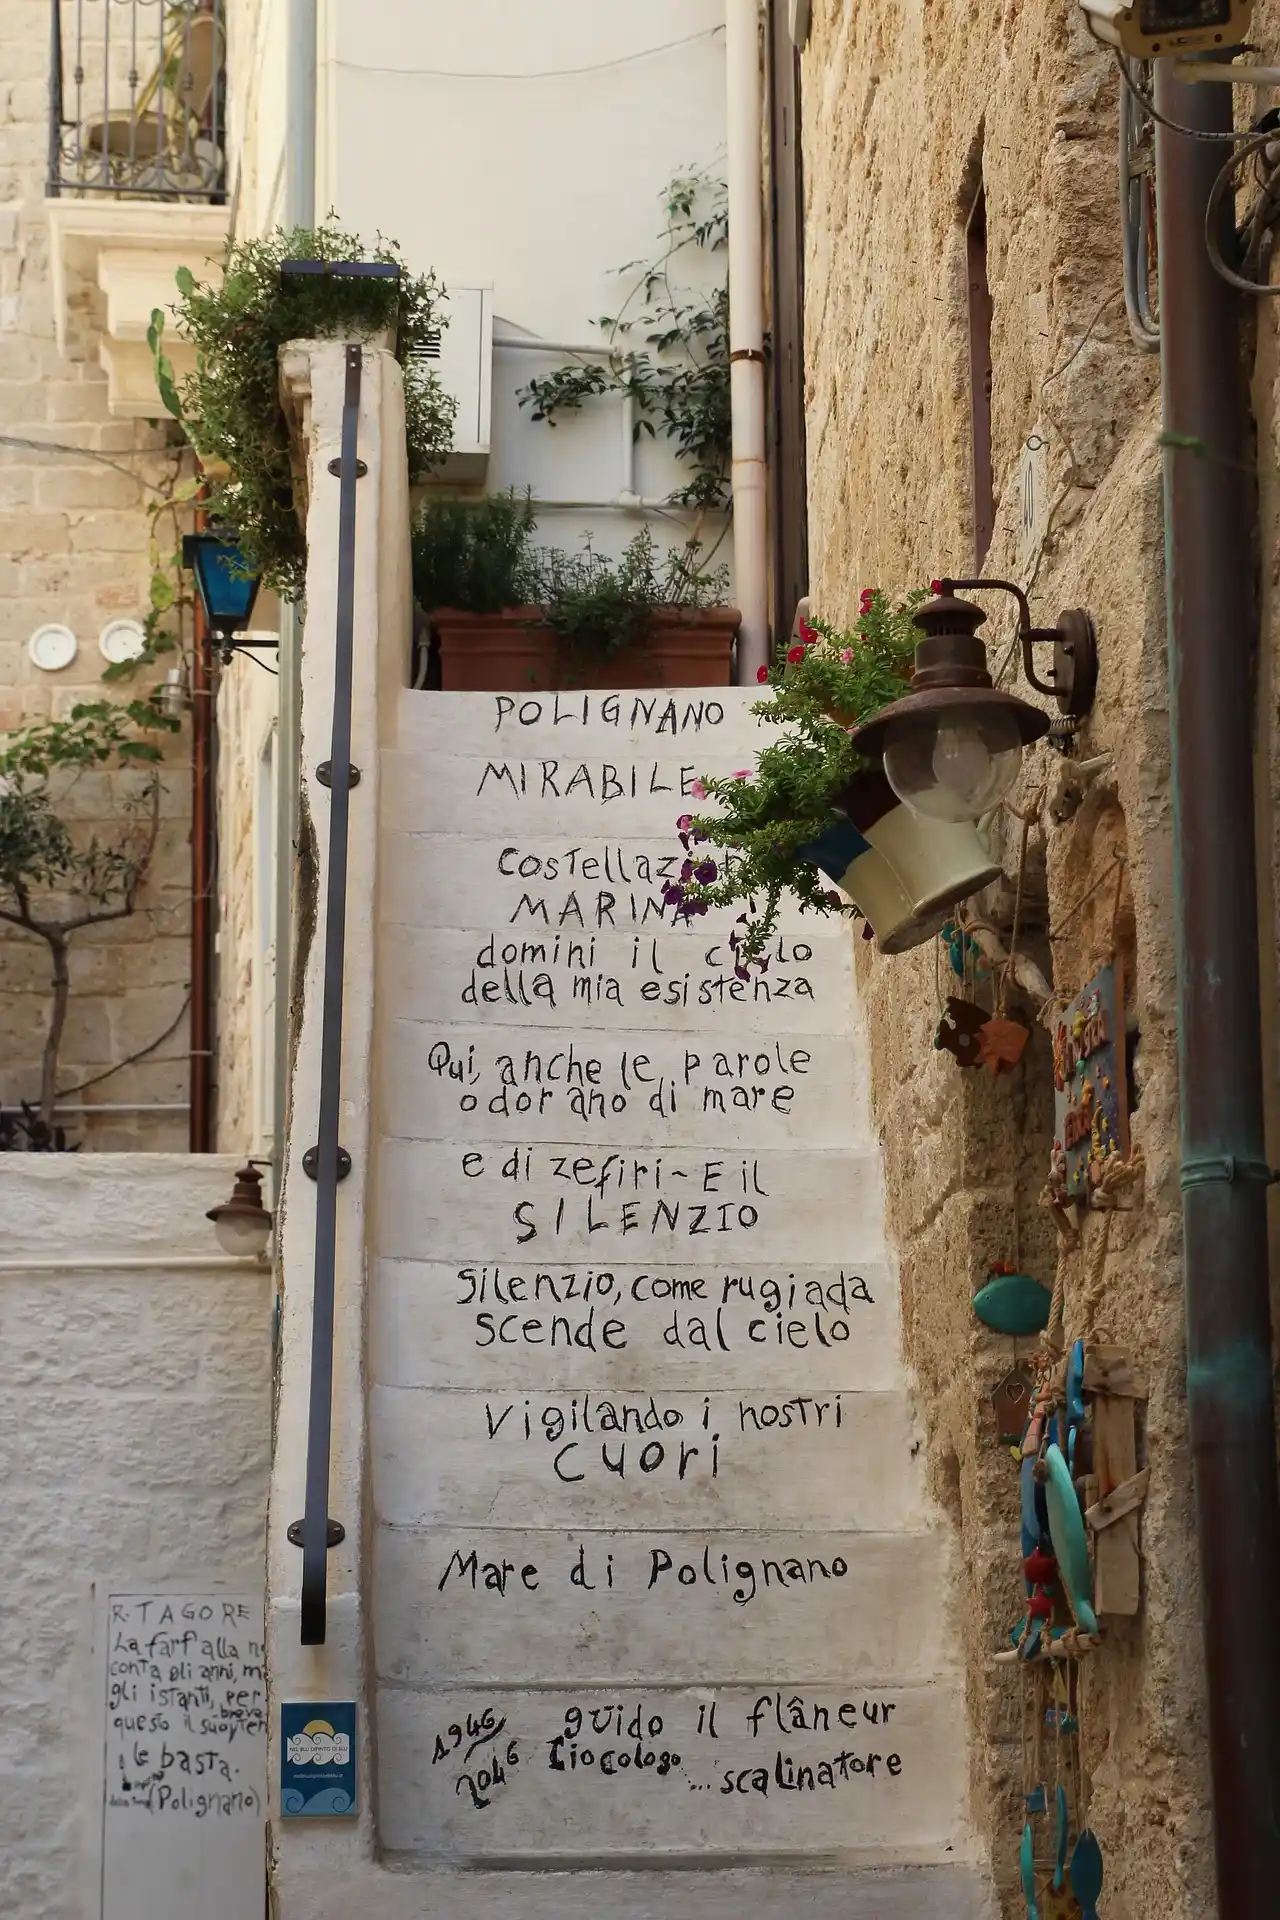 POLIGNANO
MIRABILE
costellaz
MARINA
domini il cielo
della mia esistenza
Qui, anche le parole
odorano di mare
e di zefiri ~ E il
SILENZIO
Silenzio, come rugiada
scende dal cielo
Vigilando i nostri
CUORI
Mare di Polignano
1946
2046
guido il flâneur
Ciocologo ... scalinatore
R. TAGORE
La farfalla n
conta gli anni, m
gli istanti, per
questo il suo
breve
basta.
(Polignano)
NEL BLU DIPINTO DI BLU
40